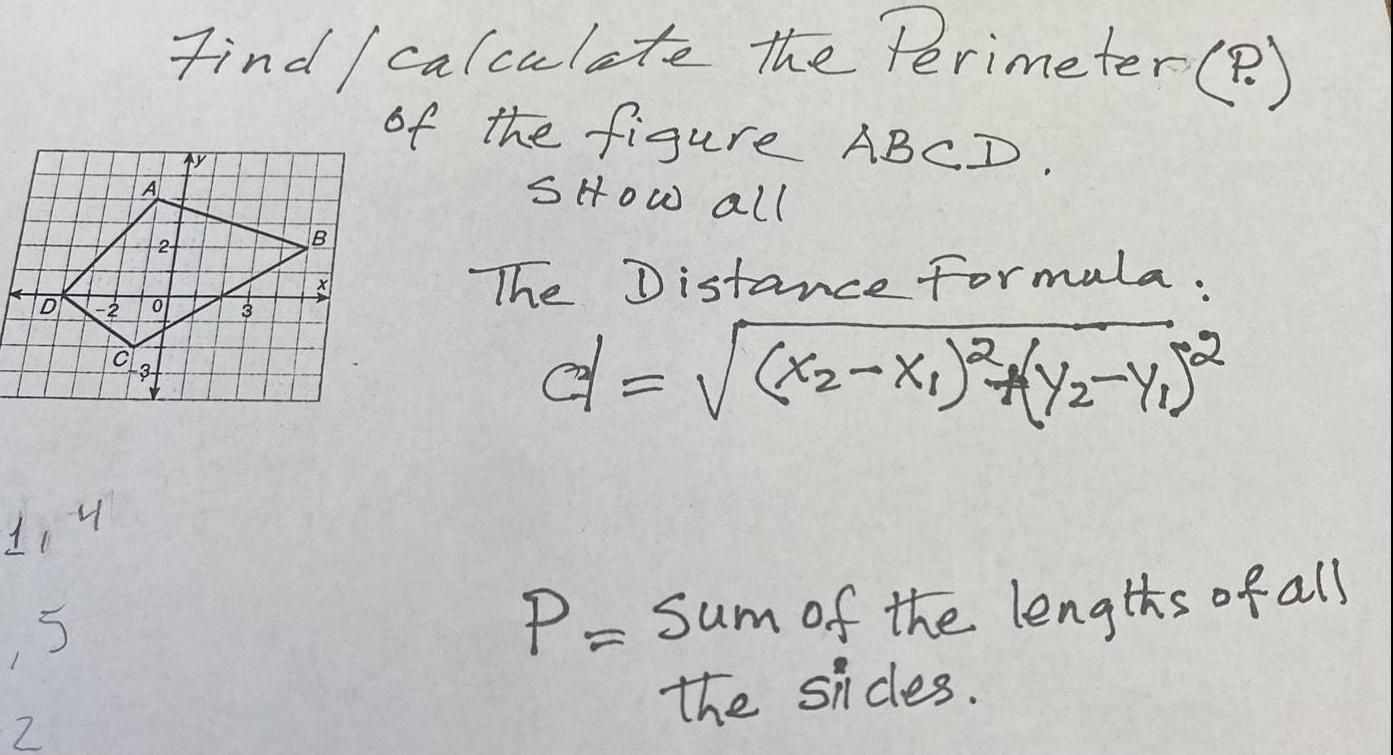 Find / calculate the Perimeter (P.)
of the figure ABCD.
SHOW all
y
A
B
2
x
D
-2
0
3
C
-3
The Distance Formula:
d = √(x₂-x₁)²+(y₂-y₁)²
1, 4
, 5
2
P = Sum of the lengths of all
the sides.